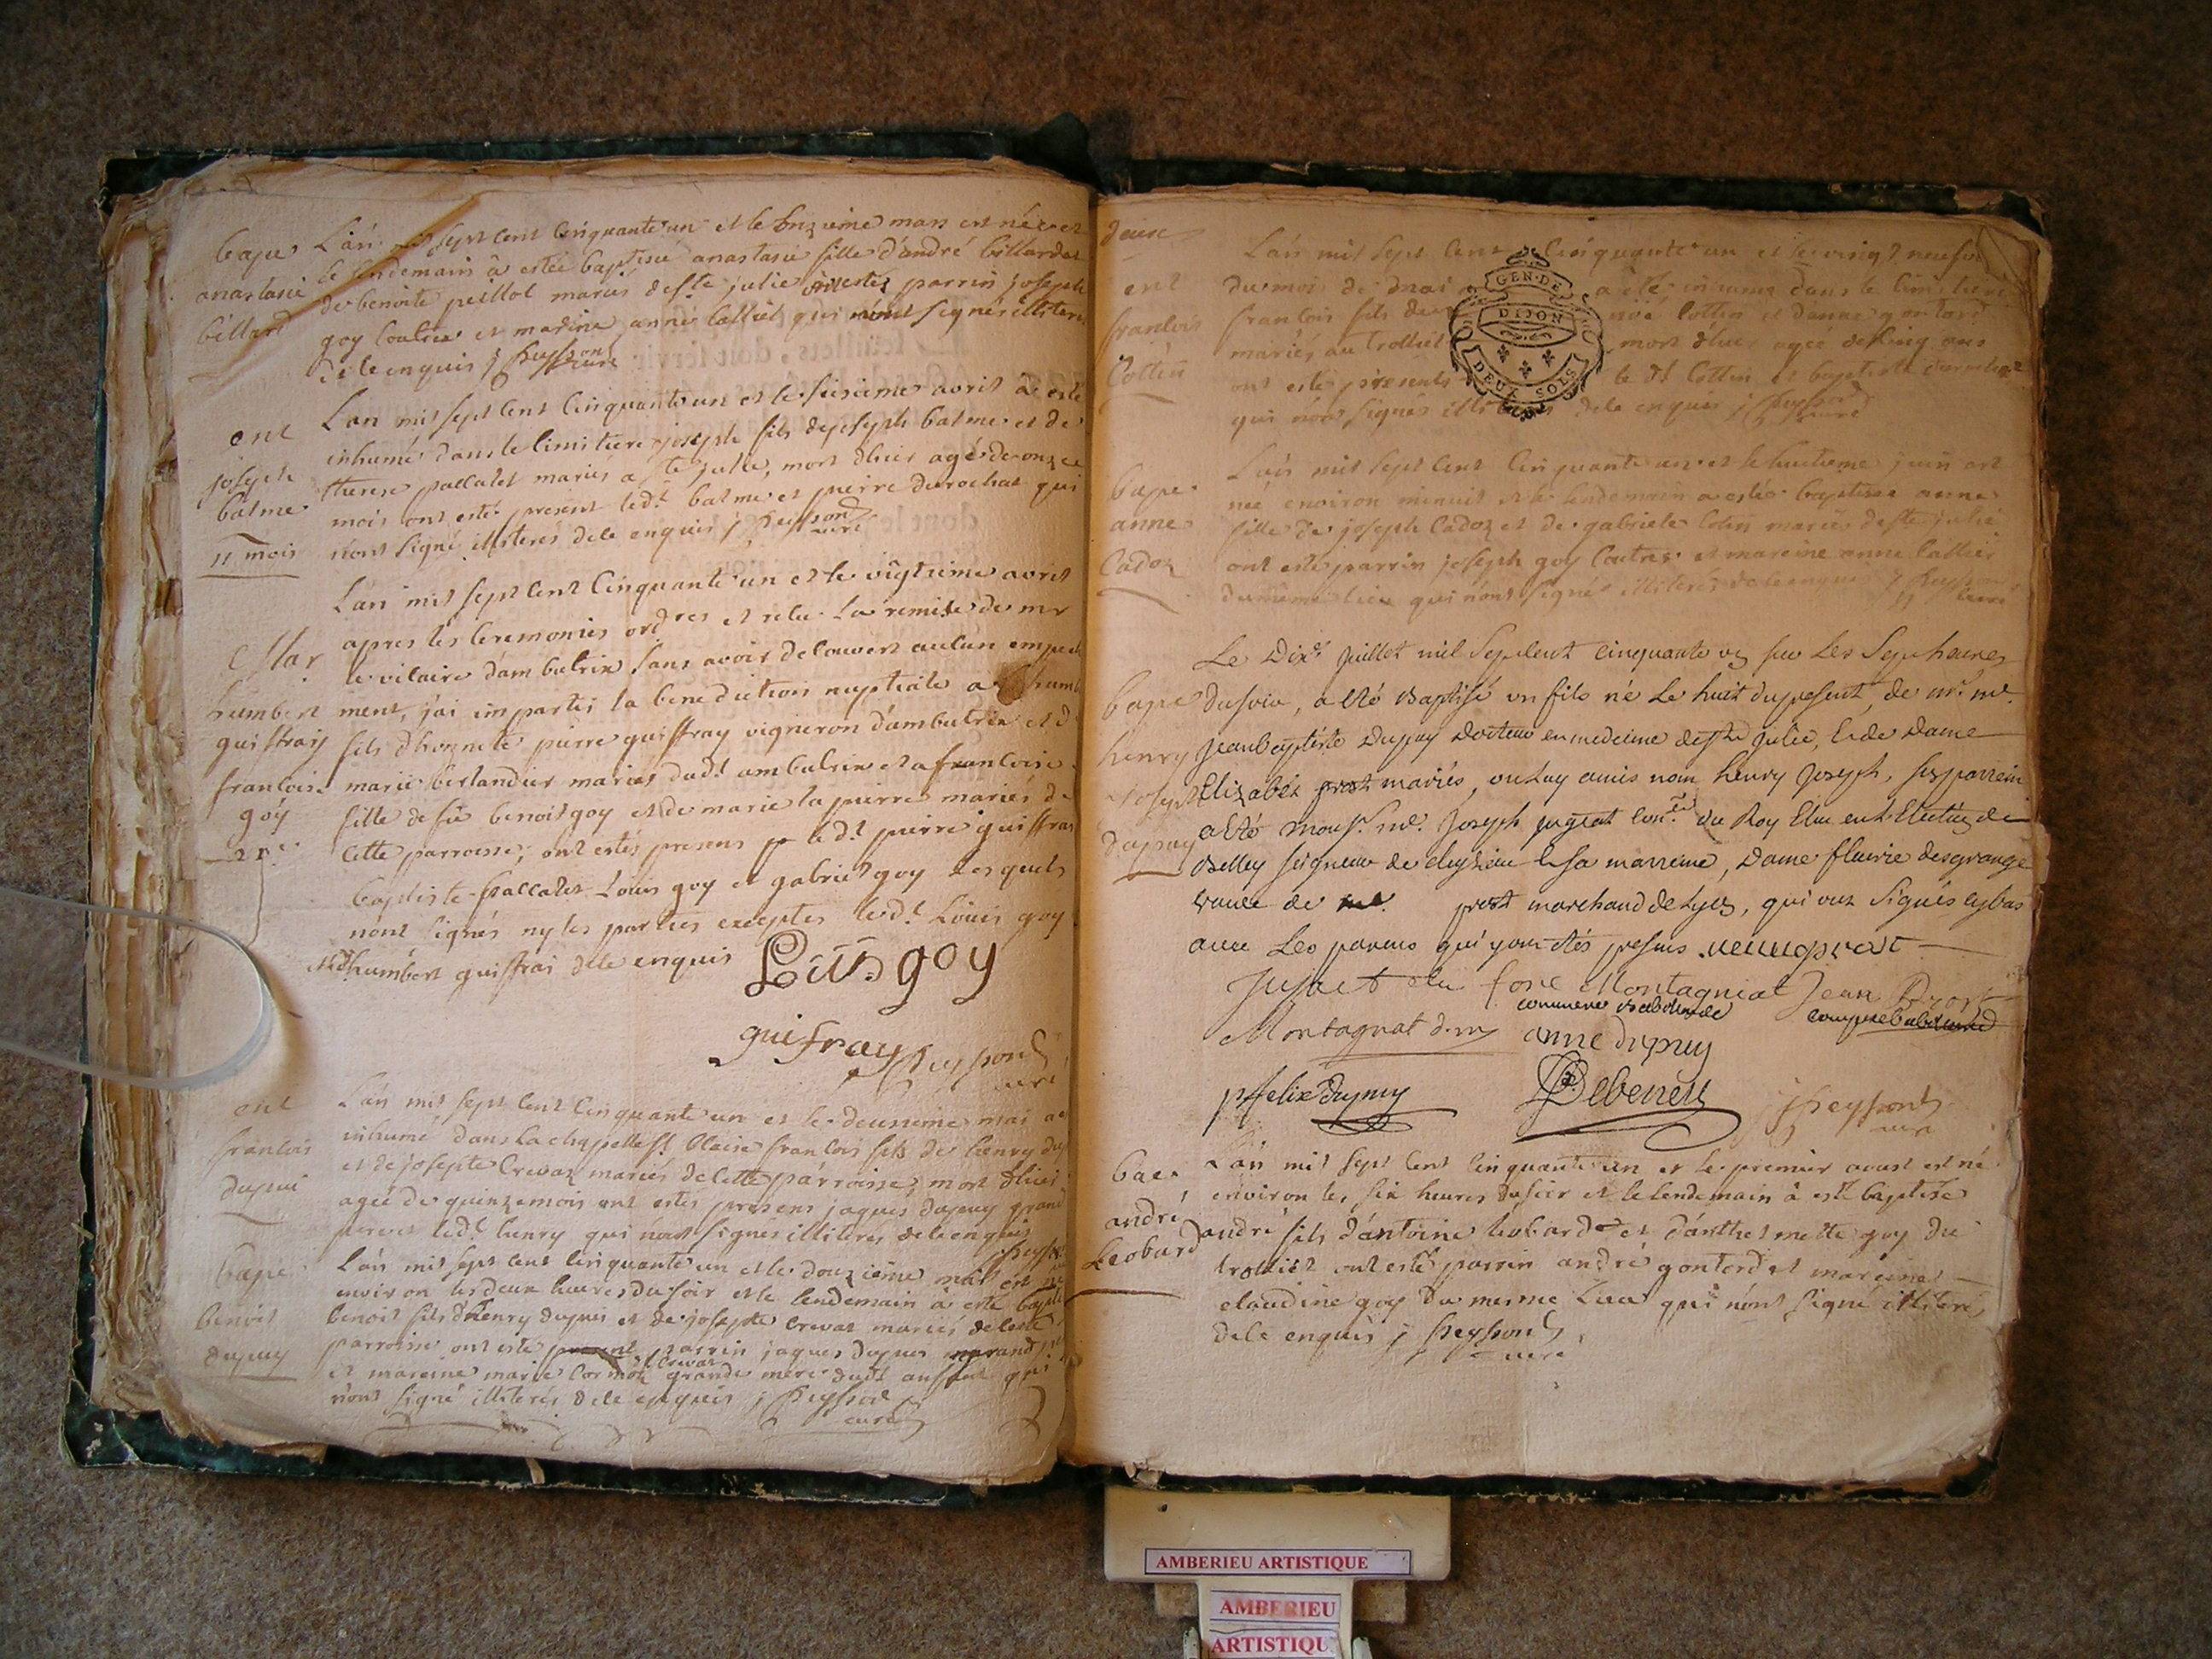 bape
anastasie
billard
L'an mil sept cent cinquante un et le onzieme mars est née et
le lendemain à estée baptisée anastasie fille d'andré billard et
de benoite peillot mariés de ste julie ont estés parrin joseph
goy et mareine anne qui n'ont signés illiteres
de ce enquis j peysson
curé
ent
joseph
balme
11 mois
L'an mil sept cent cinquante un et le sisieme avril à esté
inhumé dans le cimitiere joseph fils de joseph balme et de
therese pallalet mariés a ste julie, mort d'hier agé de onze
mois ont esté present led.t balme et pierre durochat qui
n'ont signé illiterés de ce enquis j peysson
curé
humbert
guiffray
francoise
goy
21e
L'an mil sept cent cinquante un et le vingtieme avril
apres les ceremonies ordres et relu la remise de mr
le vicaire d'ambutrix sans avoir decouvert aucun empeche
ment, j'ai imparti la benediction nuptiale a humb
fils d'honnete pierre guiffray vigneron d'ambutrix et d
marie berlandier mariés dud.t ambutrix et a francoise
fille de fû benoit goy et de marie la pierre mariés d
cette parroisse; ont estés presens led.t pierre guiffray
baptiste pallalet Louis goy et gabriel goy lesquels
n'ont signés ny les parties exceptes led.t Louis goy
et d humbert guiffrai de ce enquis Louis goy
guifray
j peysson
curé
ent
francois
dupui
L'an mil sept cent cinquante un et le deusieme mai a e
inhumé dans la chapelle st blaise francois fils de henry dup
et de josepte crevat mariés de cette parroisse, mort d'hier
agée de quinze mois ont estés presens jaques dupuy grand
pere et led.t henry qui n'ont signés illiterés de ce enquis
j peysson
bape
benoit
dupuy
L'an mil sept cent cinquante un et le douzieme mai est né
environ les deux heures du soir et le lendemain à esté baptisé
benoit fils d'henry dupuis et de josepte crevat mariés de cette
parroisse ont esté present parrin jaques dupuis grand
et mareine marie crevat grande mere dud.t enfant qui
n'ont signé illiterés de ce enquis j peysson
curé
deux
ent
francois
Cottin
L'an mil sept cent cinquante un et le vingt neufi
du mois de mai a été inhumé dans le cimitiere
francois fils de Cottin et gontard
mariés au trolliet mort d'hier agé de cinq ans
ont esté présents le dt Cottin et baptiste
qui n'ont signés illiteres de ce enquis j peysson
curé
GEN. DE
DIJON
DEUX SOLS
bape
anne
Cadoz
L'an mil sept cent cinquante un et le huitieme juin est
née environ minuit et le lendemain a estée baptisée anne
fille de joseph Cadoz et de gabriele Cotin mariés de ste julie
ont esté parrin joseph goy et mareine anne
du meme lieu qui n'ont signés illiterés de ce enquis j peysson
curé
bape
henry
Joseph
dupuy
Le Dixe. Juillet mil Sept cent cinquante un sur Les Sept heures
du soir, a esté Baptisé un fils né Le huit du present, de mr. me.
Jean baptiste Dupuy Docteur en medecine de ste Julie, & de Dame
Elizabet prost mariés, on luy a mis nom henry Joseph, son parrein
a esté Monsr. me. Joseph Jugeat Conser. du Roy Elu en L'Election de
Belley seigneur de & sa marreine, Dame fleurie desgrange
veuve de prost marchand de Lyon, qui ont Signés cy bas
avec Les parens qui y ont étés presens. veuve prost
Jujact elu fore Montagniat Jean Prost
commere
Montagnat d.m anne dupuy
p felix Dupuy Debenen j peysson
curé
bae
andré
Leobard
L'an mil sept cent cinquante un et le premier aoust est né
environ les six heures du soir et le lendemain à esté baptisé
andré fils d'antoine leobard et d'anthelmette goy du
trolliet ont esté parrin andré gontard et mareine
claudine goy du mesme Lieu qui n'ont signé illiterés
de ce enquis j peysson
curé
AMBERIEU ARTISTIQUE
AMBERIEU
ARTISTIQU